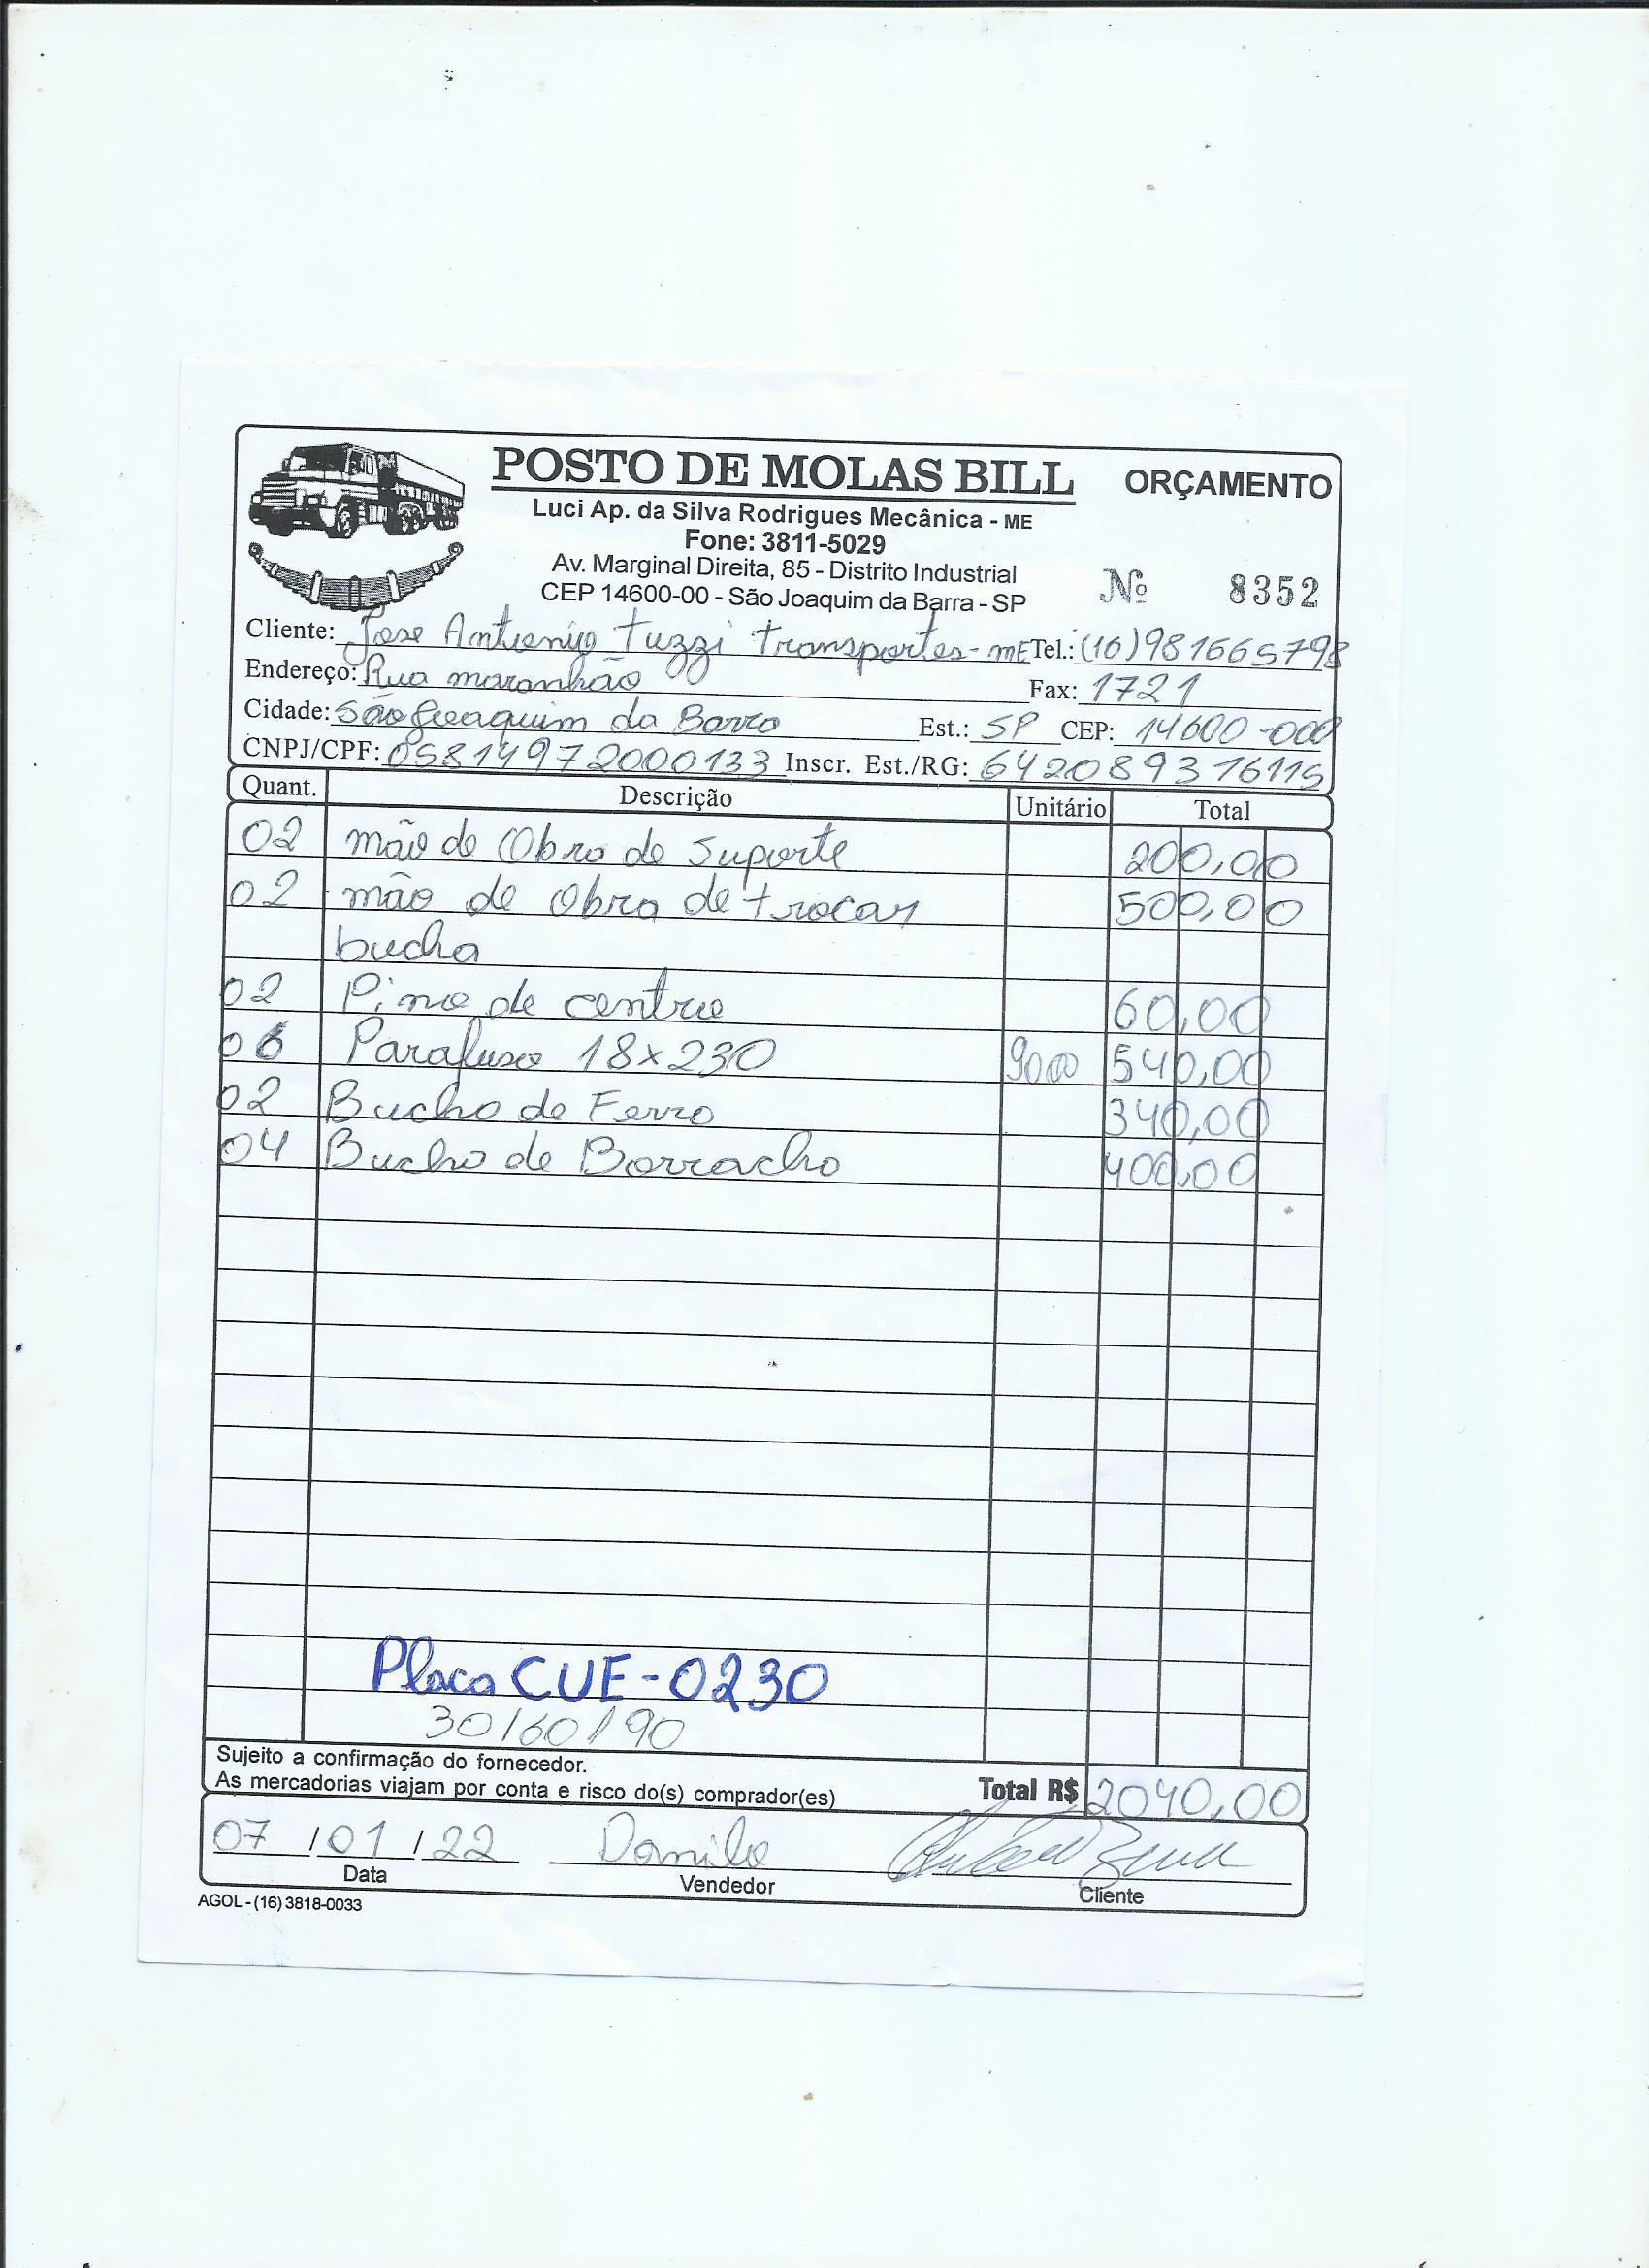 POSTO DE MOLAS BILL ORÇAMENTO
Luci Ap. da Silva Rodrigues Mecânica - ME
Fone: 3811-5029
Av. Marginal Direita, 85 - Distrito Industrial
CEP 14600-00 - São Joaquim da Barra - SP
Nº 8352
Cliente: Jose Antuenio Tuzzi Transportes - ME Tel.: (16) 981665798
Endereço: Rua maranhão Fax: 1721
Cidade: São Joaquim da Barra Est.: SP CEP: 14600-000
CNPJ/CPF: 05814972000133 Inscr. Est./RG: 642089316115
Quant. Descrição Unitário Total
02 mão de Obra de Suporte 200,00
02 mão de obra de trocar 500,00
bucha
02 Pino de centro 60,00
06 Parafuso 18x230 90,00 540,00
02 Bucha de Ferro 340,00
04 Bucha de Borracha 400,00
Placa CUE-0230
30/60/90
Sujeito a confirmação do fornecedor.
As mercadorias viajam por conta e risco do(s) comprador(es) Total R$ 2040,00
07/01/22 Danilo
Data Vendedor Cliente
AGOL - (16) 3818-0033